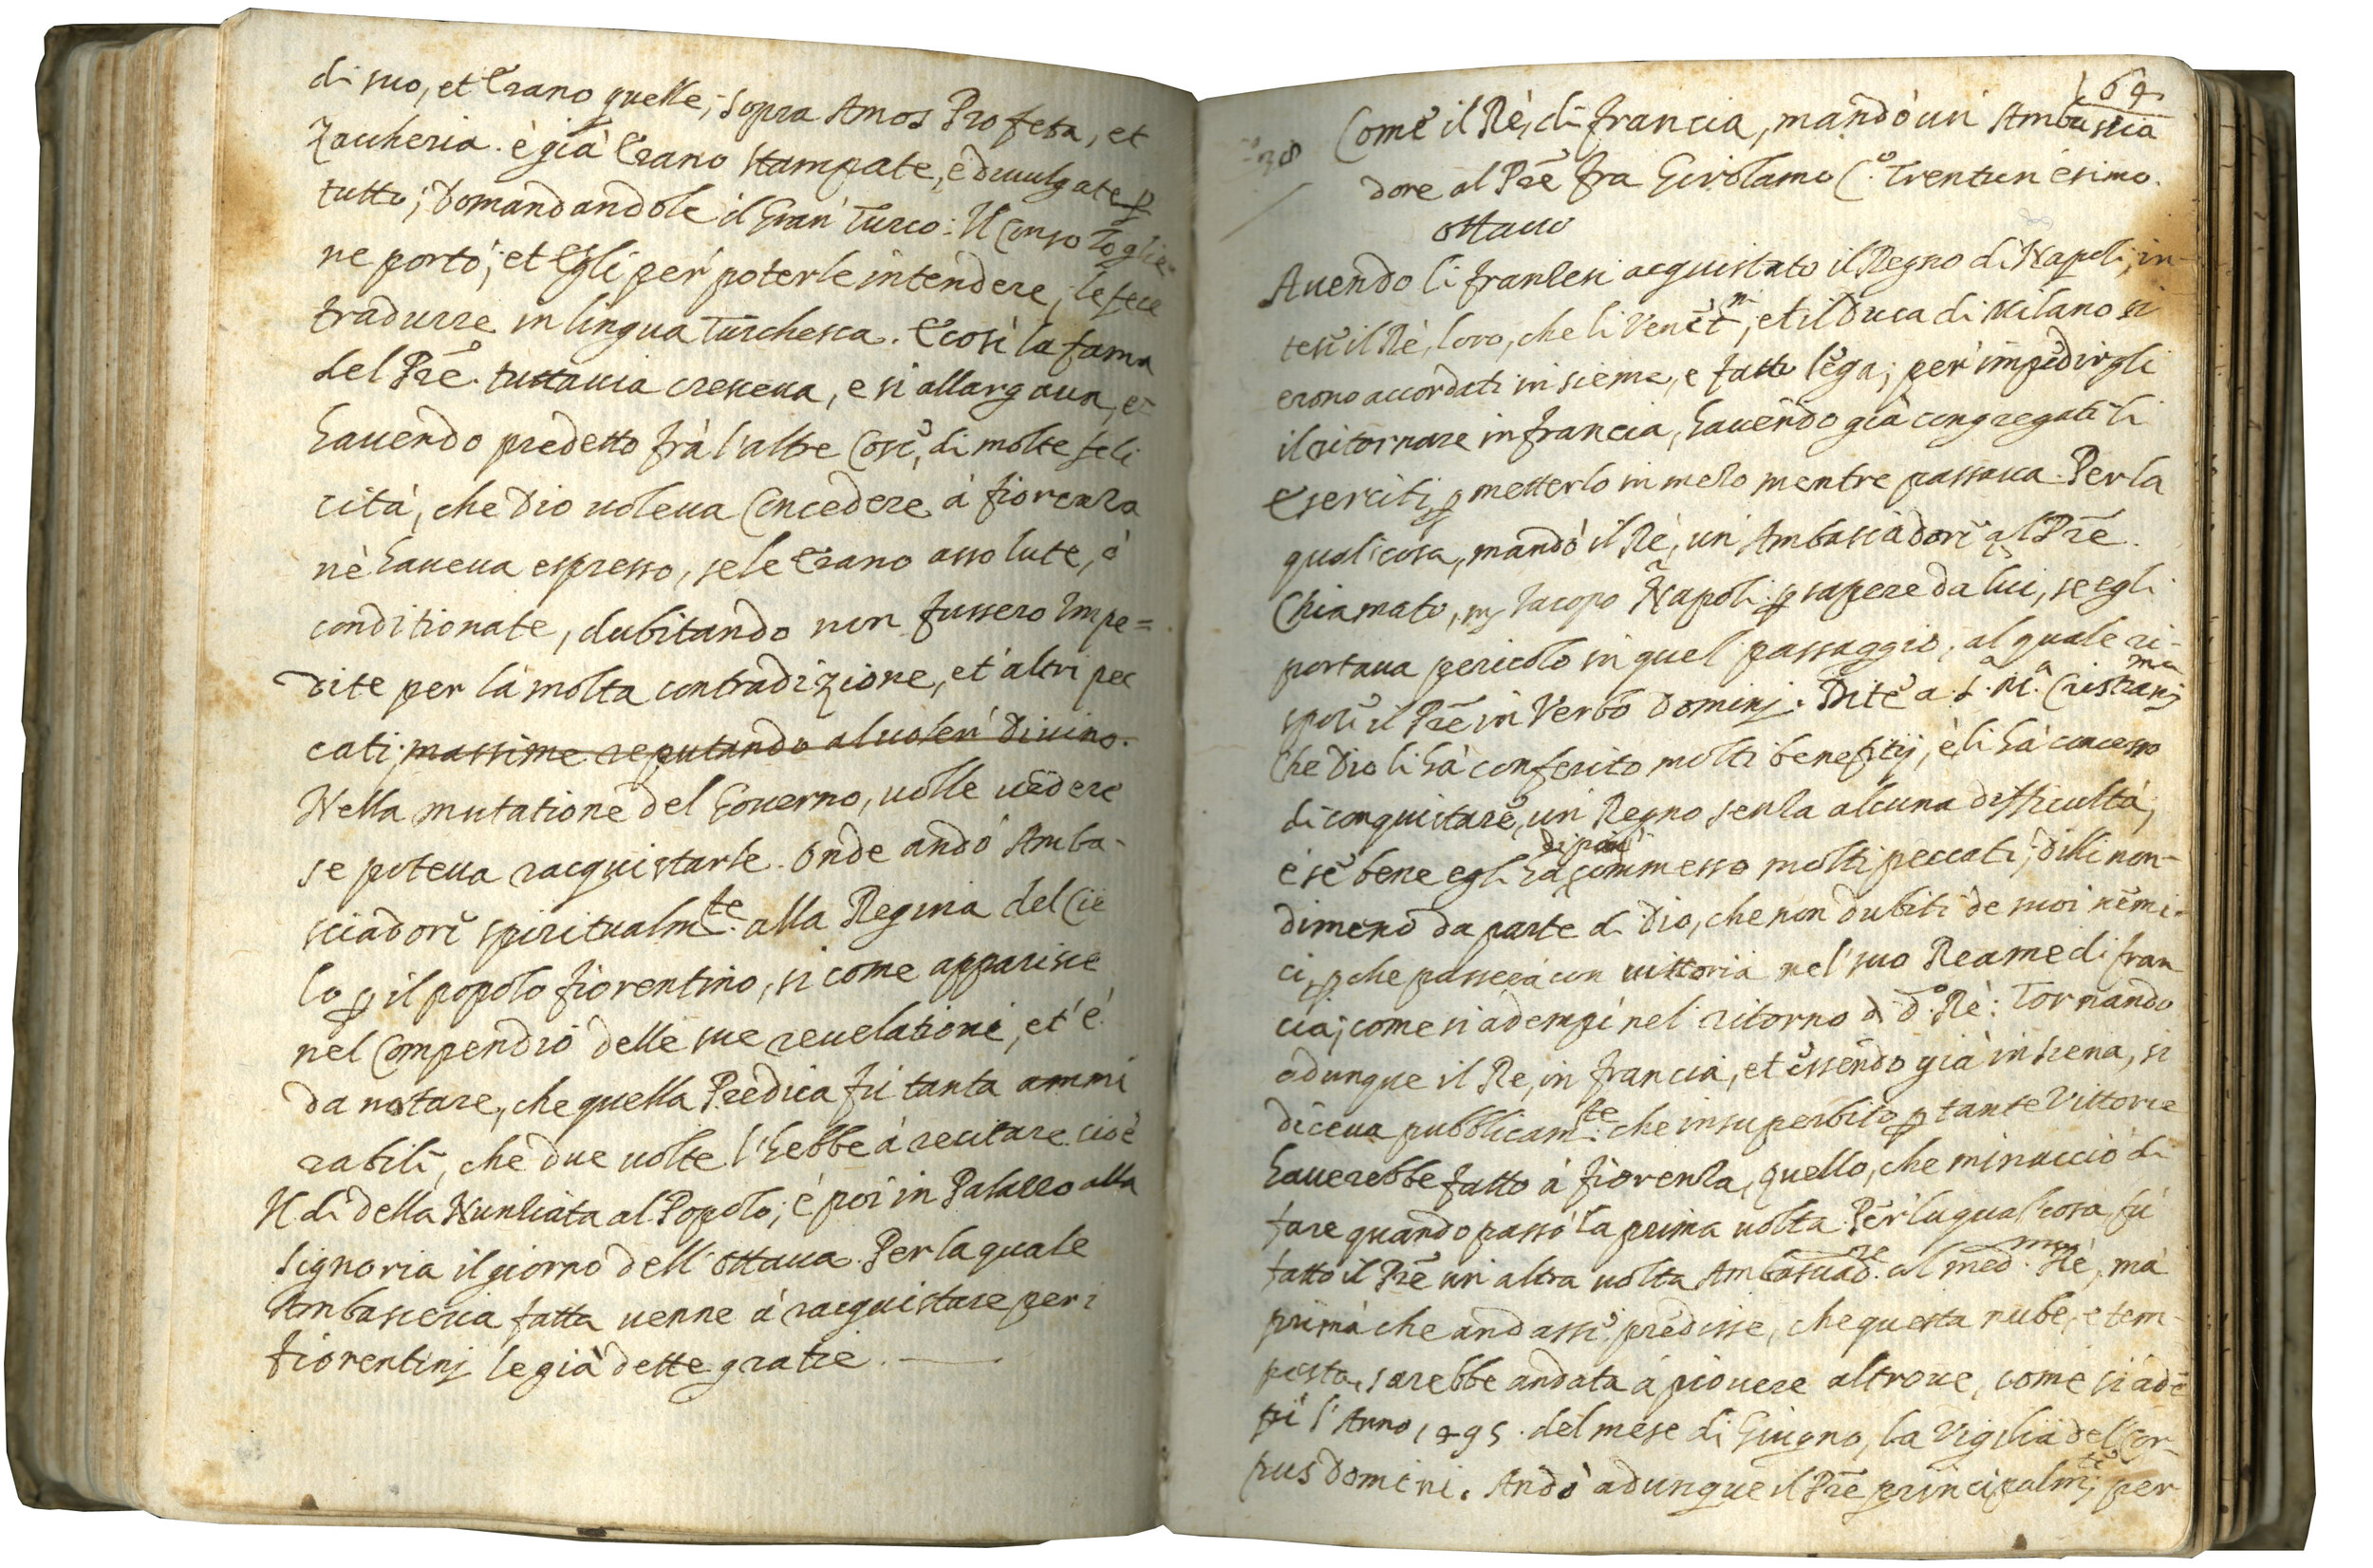 di suo, et Erano quelle, sopra Amos Profeta, et
Zaccheria. è già Erano stampate, è divulgate p
tutto; Domandandole il Gran Turco: Il Conso Toglie-
ne portò; et Egli per poterle intendere, le fece
tradurre in lingua Turchesca. E così la fama
del Pre. tuttavia cresceva, e si allargaua, et
hauendo predetto frà l'altre Cose, di molte feli
cità, che Dio uoleua Concedere à fiorenza
nè haueua espresso, se le Erano assolute, ò
conditionate, dubitando non fussero Impe=
dite per la molta contradizione, et altri pec
cati. massime reputando al uoler Diuino.
Nella mutatione del Gouerno, uolle uedere
se poteua racquistarle. Onde andò Amba-
sciadore spiritualm.te alla Regina del Cie
lo p il popolo fiorentino, si come apparisce
nel Compendio delle sue reuelationi, et è
da notare, che quella Predica fu tanta ammi
rabile, che due uolte l'hebbe à recitare cioè
Il di della Nunziata al Popolo; è poi in Palazzo alla
Signoria il giorno dell'ottaua. Per la quale
Ambasceria fatta uenne à racquistare per i
fiorentinj le già dette gratie.
169
38 Come il Rè, di francia, mandò un Ambascia
dore al Pre fra Girolamo C.o Trentunesimo.
ottauo
Auendo li franzesi acquistato il Regno di Napoli, in-
tese il Rè, loro, che li Venet.ni, et il Duca di Milano si
erono accordati insieme, e fatto lega; per impedirgli
il ritornare in francia, hauendo già congregati li
Eserciti, p metterlo in mezo mentre passaua. Per la
qual cosa, mandò il Rè, un Ambasciadore al Pre.
Chiamato, mj Iacopo Napoli. p sapere da lui, se egli
portaua pericolo in quel passaggio, al quale ri-
spose il Pre in Verbo Dominj. Dite a S. M.a Cristianj.ma
Che Dio li hà conferito molti benefitij, è li hà concesso
di conquistare, un Regno senza alcuna difficultà;
è se bene egli hà di poi commesso molti peccati, dilli non-
dimeno da parte di Dio, che non dubiti de suoi nemi-
ci, p che passerà con uittoria nel suo Reame di fran
cia; come si adempì nel ritorno d d.o Rè: Tornando
adunque il Re, in francia, et essendo già in siena, si
diceua pubblicam.te che insuperbito p tante Vittorie
hauerebbe fatto à fiorenza, quello, che minacciò di
fare quando passò la prima uolta. Per la qual cosa, fù
fatto il Pre un altra uolta Ambasciad.re al med.mo Rè, mà
prima che andasse, predisse, che questa nube, e tem-
pesta, sarebbe andata à piouere altroue, come si adē
pì l'Anno, 1495. del mese di Giugno, la Vigilia del Cor-
pus Domini. Andò adunque il Pre principalm.te per